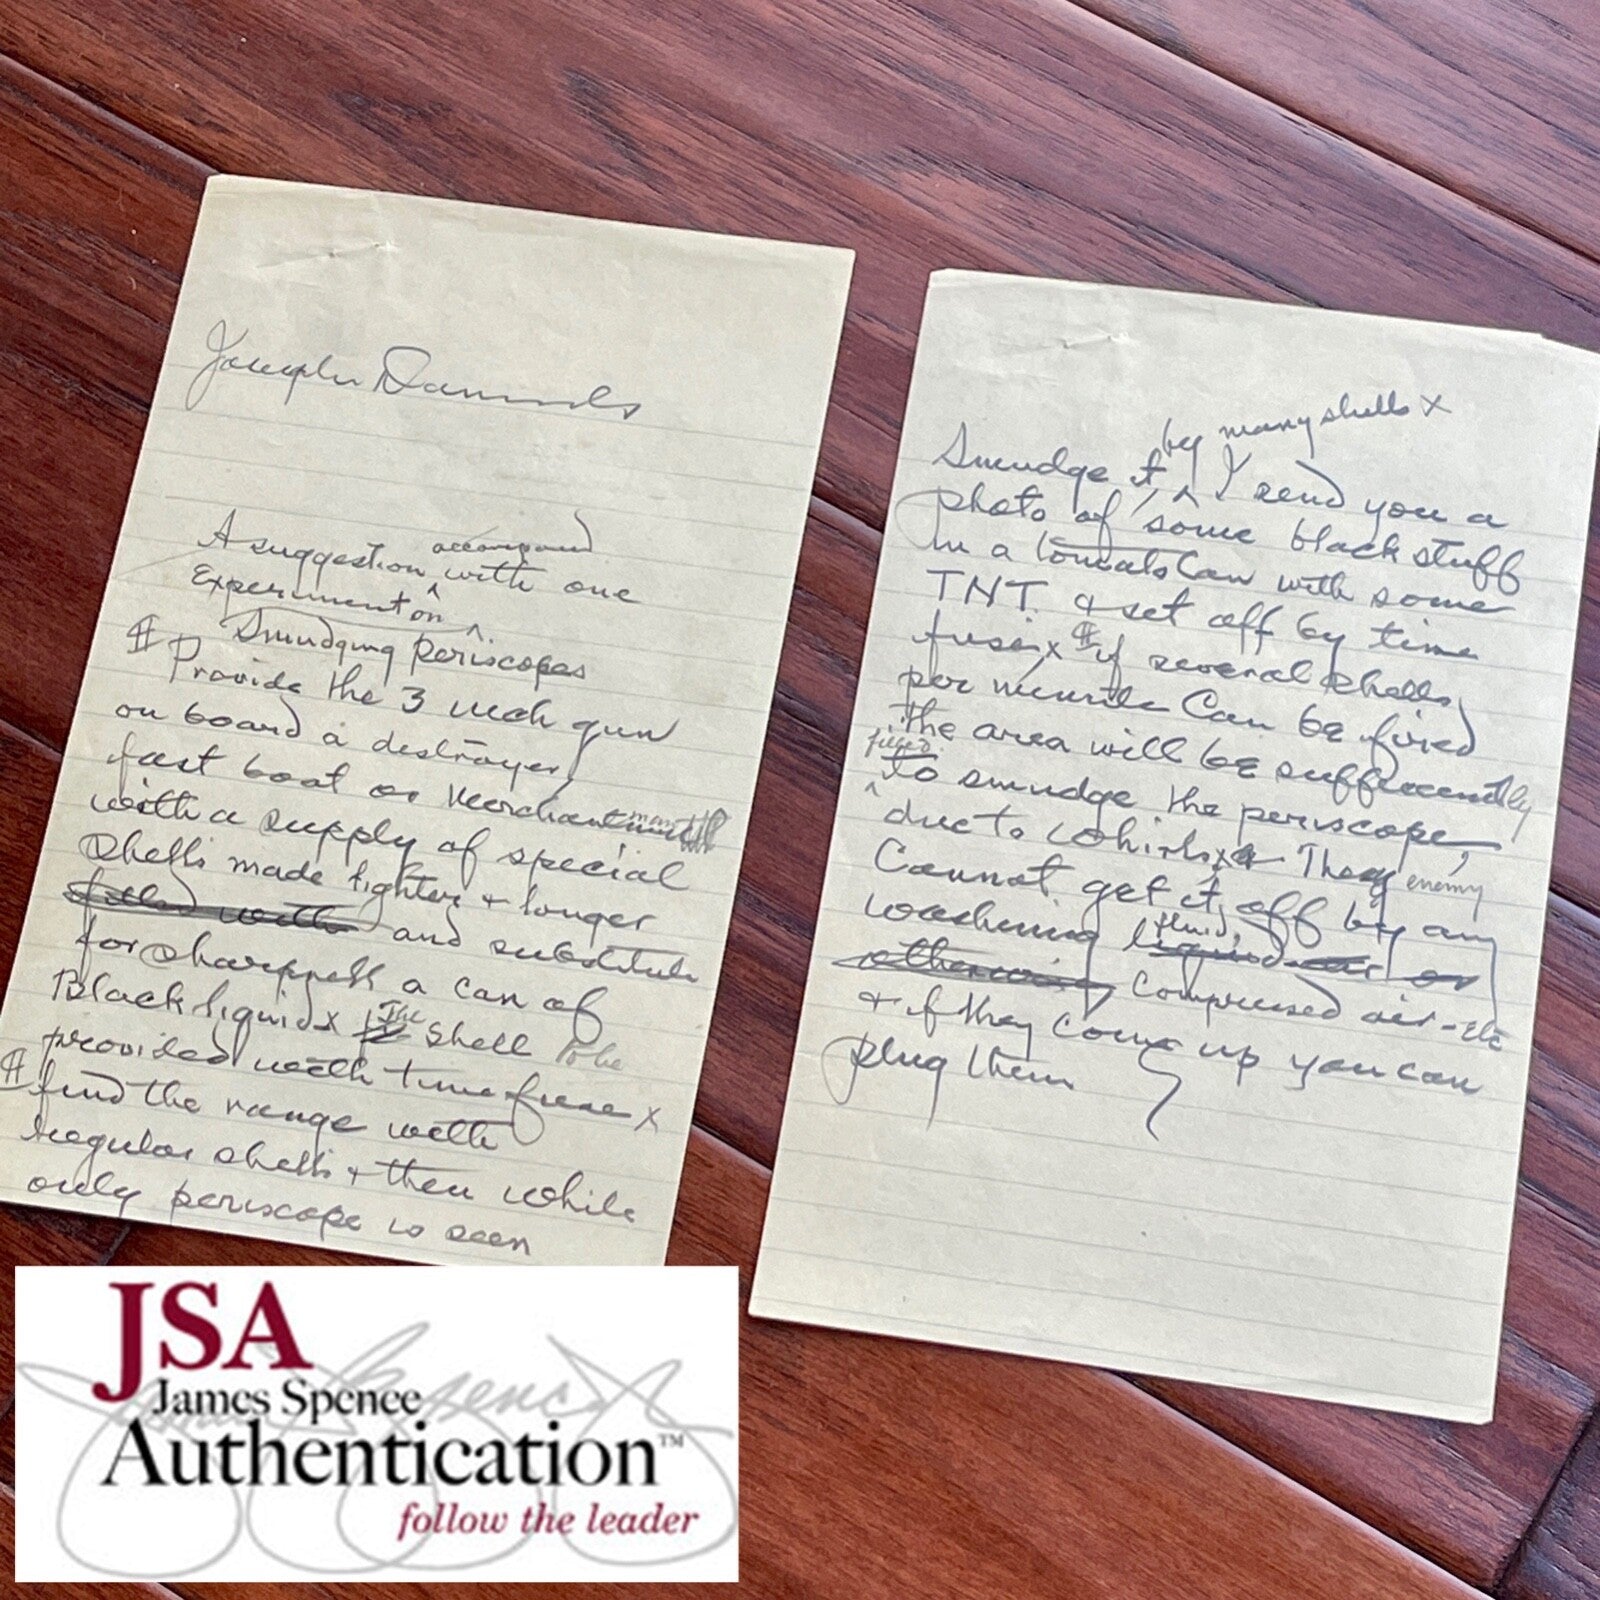 Joseph Daniels
A suggestion accompanied with one
Experiment on
Smudging periscopes
Provide the 3 inch gun
on board a destroyer,
fast boat or Merchantman
with a supply of special
shells made lighter & longer
filled with and substitute
for sharpnell a can of
Black liquid x The Shell to be
provided with time fuse x
find the range with
regular shells & then while
only periscope is seen
Smudge it, by many shells x I send you a
photo of some black stuff
in a tomato Can with some
TNT. & set off by time
fuse x if several shells
per minute Can be fired
the area will be sufficiently
filled to smudge the periscope,
due to whirls x They enemy
Cannot get it off by any
washing fluid, liquid or
otherwise Compressed air - etc
& if they come up you can
plug them
JSA
James Spence
Authentication™
follow the leader